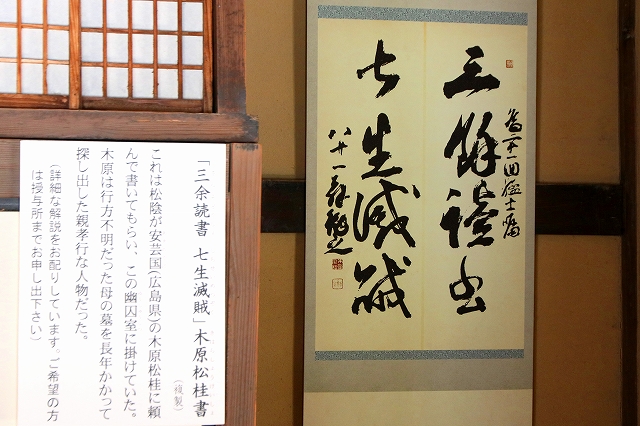 三餘讀書
七生滅賊
為二十一回猛士
八十一
「三余読書 七生滅賊」木原松桂書
(複製)
これは松陰が安芸国(広島県)の木原松桂に頼
んで書いてもらい、この幽囚室に掛けていた。
木原は行方不明だった母の墓を長年かかって
探し出した親孝行な人物だった。
(詳細な解説をお配りしています。ご希望の方
は授与所までお申し出下さい)